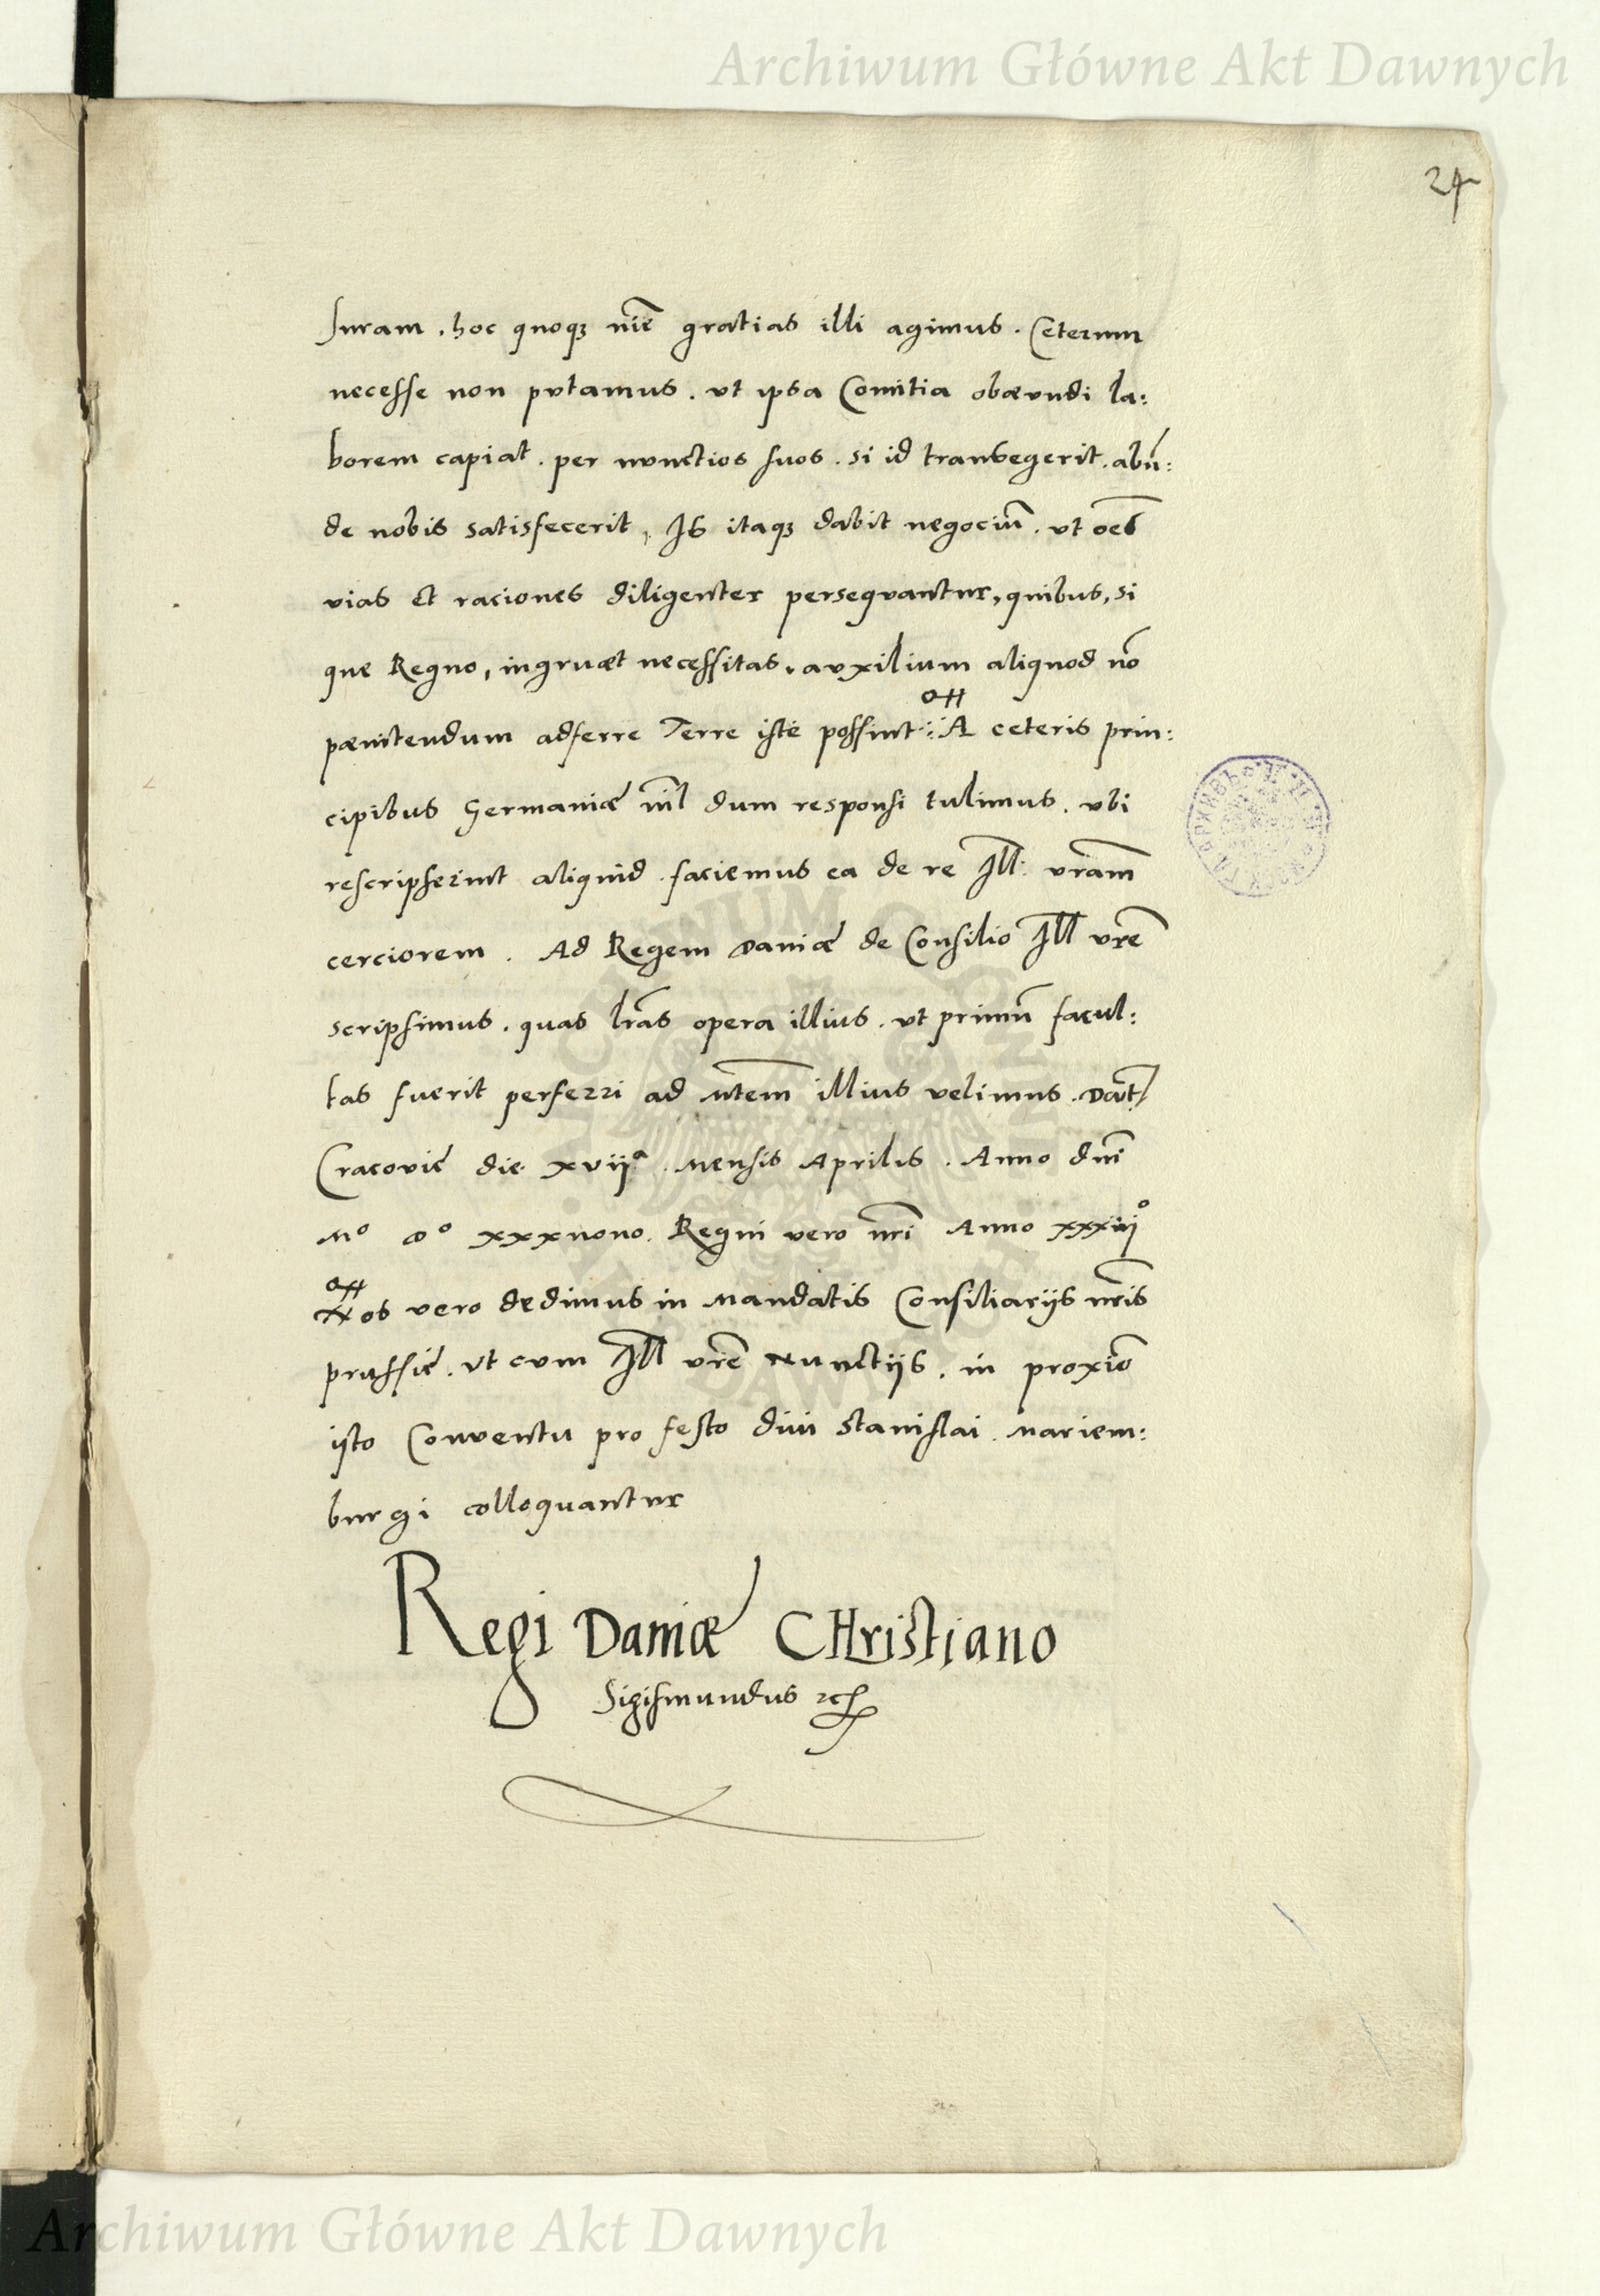 Archiwum Główne Akt Dawnych
24
suram . hoc quoqꝫ nõie gratias illi agimus . Ceterum
necesse non putamus . ut ipsa Comitia obæundi la:
borem capiat . per nunctios suos . si id transegerit . abũ:
de nobis satisfecerit , Is itaqꝫ dabit negociũ . ut oẽs
vias et raciones diligenter persequantur, quibus, si
que Regno, ingruæt necessitas, auxilium aliquod nõ
pænitendum adferre Terre iste possint A ceteris prin:
cipibus Germaniæ nil dum responsi tulimus . ubi
rescripserint aliquid . faciemus ea de re Ill: vram
cerciorem . Ad Regem Daniæ de Consilio Ill vre
scripsimus . quas lras opera illius . ut primũ facul:
tas fuerit perferri ad Mtem illius velimus . Dat
Cracovie die xvijª . Mensis Aprilis . Anno dni
Mº Dº xxxnono . Regni vero nri Anno xxxiijº
Nos vero dedimus in Mandatis Consiliarijs nris
prussie . ut cum Ill vre Nunctijs . in proxio
isto Conventu pro festo divi Stanislai . Mariem:
burgi colloquantur
Regi Daniæ CHristiano
Sigismundus
Archiwum Główne Akt Dawnych